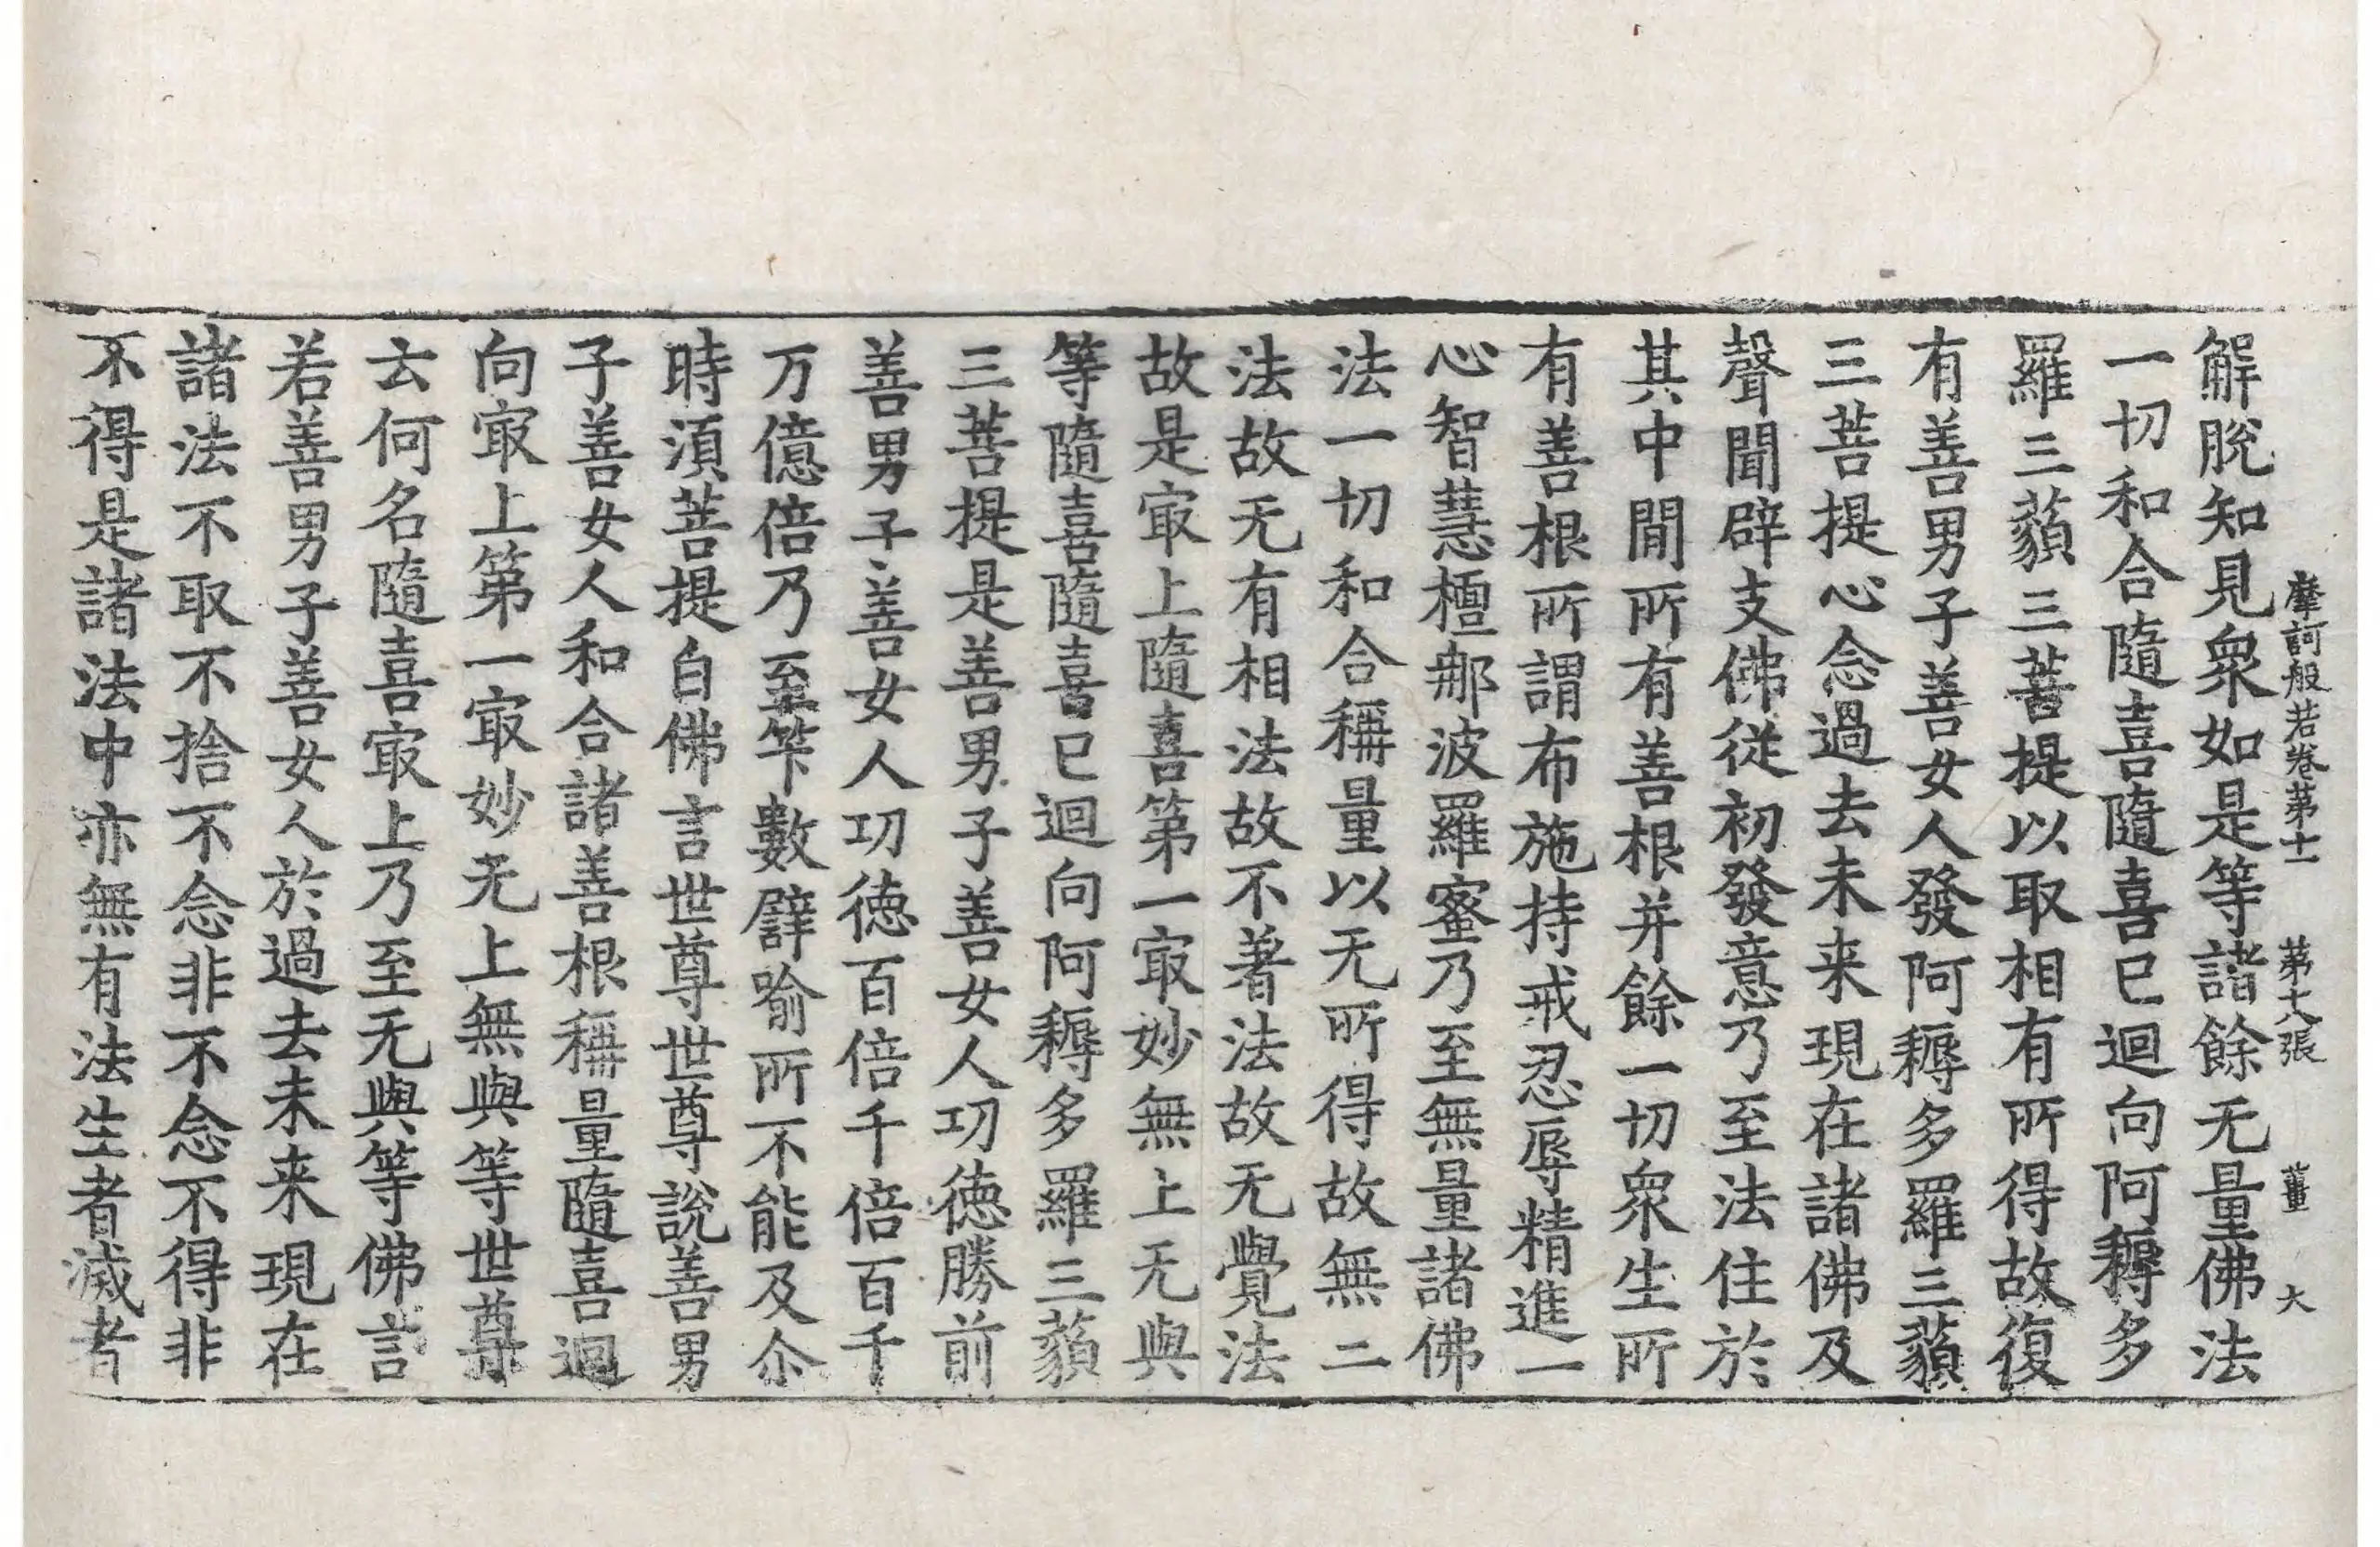 摩訶般若卷第十一　第大張　薑　大
解脫知見衆如是等諸餘无量佛法
一切和合隨喜隨喜已迴向阿耨多
羅三藐三菩提以取相有所得故復
有善男子善女人發阿耨多羅三藐
三菩提心念過去未来現在諸佛及
聲聞辟支佛從初發意乃至法住於
其中閒所有善根并餘一切衆生所
有善根所謂布施持戒忍辱精進一
心智慧檀那波羅蜜乃至無量諸佛
法一切和合稱量以无所得故無二
法故无有相法故不著法故无覺法
故是㝡上隨喜第一㝡妙無上无與
等隨喜隨喜已迴向阿耨多羅三藐
三菩提是善男子善女人功徳勝前
善男子善女人功徳百倍千倍百千
万億倍乃至筭數譬喻所不能及尒
時湏菩提白佛言世尊世尊說善男
子善女人和合諸善根稱量隨喜迴
向㝡上第一㝡妙无上無與等世尊
云何名隨喜㝡上乃至无與等佛言
若善男子善女人於過去未来現在
諸法不取不捨不念非不念不得非
不得是諸法中亦無有法生者滅者